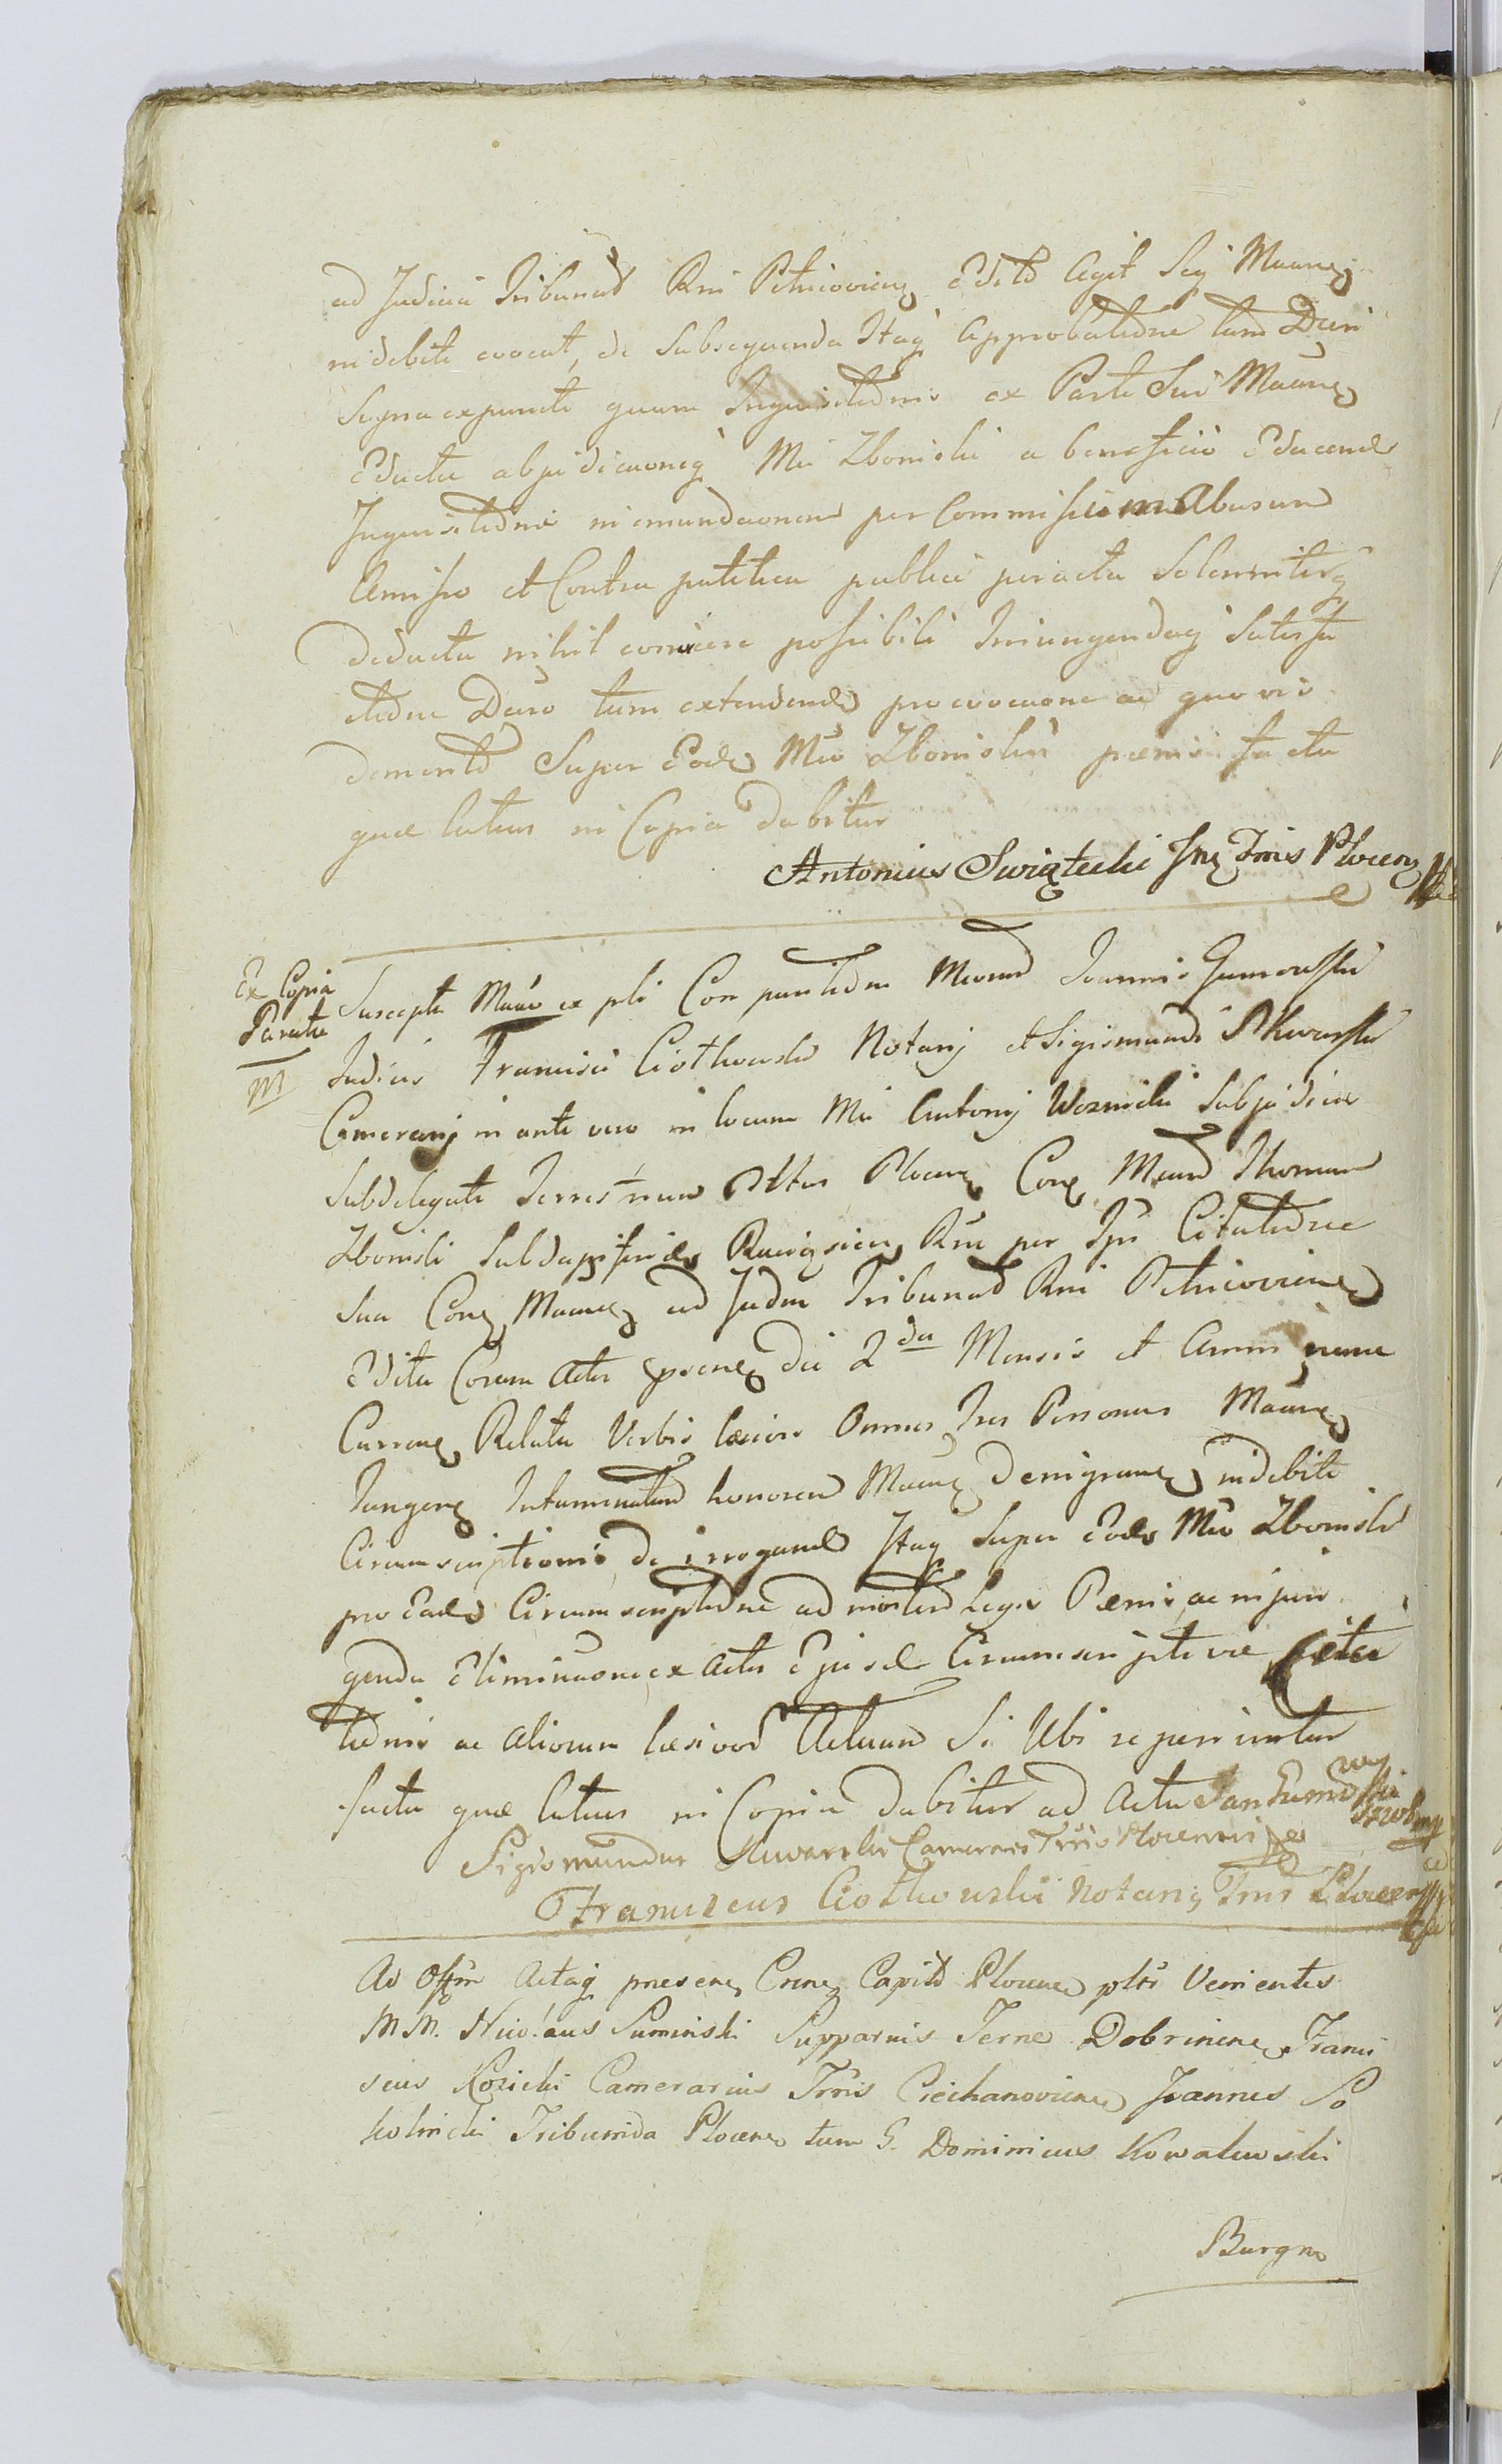 ad Judicia Tribunal Rni Petricovien Edit Agit seq Maane
indebite evocat, de subsequenda Itaq Approbatione tam Dieri
Signa expuncti quam Inquisitionis ex Parte Sui Maane
Educta abjudicaoneq Mei Zbonislii a beneficio Educend
Inquisitione in emundaonem per Commissum Abusum
Amisso et Contra patitia publice peracta Solenniterq
deducta nihil convicere possibili Iniungendaq Satisfa
ctione Decro tum extendend pro evocaone ac quovis
demerito Super Eode Mco Zbonislii poenis facta
quae latius in Copia dabitur
Antonius Swiątecki Jnq Tris Plocen
Ex Copia
Parata
M
Suscepta Maao ex pli Comparitione Mcorum Joannis Gumowski
Judicis Francisci Ciotkowski Notarij et Sigismundi Skwarski
Camerarij in ante vero in locum Mci Antonij Woznicki Subjudicis
Subdelegati Terrestrium Pttus Plocen Con Mcum Thomam
Zbonski Subdapiferides Raciązien Rne per Ipsi Citatione
sua Con Maane ad Judm Tribunal Rni Petricovien
Edita Coram Actis prsene die 2da Mensis et Anni nunc
Curren Relata Verbis laesivis Omnes Tres Personas Maane
Tangen Intaminatum honorem Maane denigrane indebite
Circumscriptionis de irrogand Itaq Super Eode Mco Zbonski
pro Eade Circumscriptione ad mentem Legis Poenis ac injun
genda Eliminaone ex Actis Ejusd Circumscriptivae Cita
tionis ac aliorum laesivor Actuum Si Ubi reperirentur
facta quae latius in Copia dabitur ad Acta Jan Gumowski
Sigismundus Skwarski Camerarius Trris Plocensis
Franciscus Ciotkowski Notarij Trris Plocen
Ad Offm Actaq presen Crine Capit Plocen pltr Venientes
M M. Nicolaus Suminski Supparius Terrae Dobrinen, Franci
scus Kozicki Camerarius Trris Ciechanovien Joannes So
kolnicki Tribunida Plocen tum G. Dominicus Kowalewski
Burgn